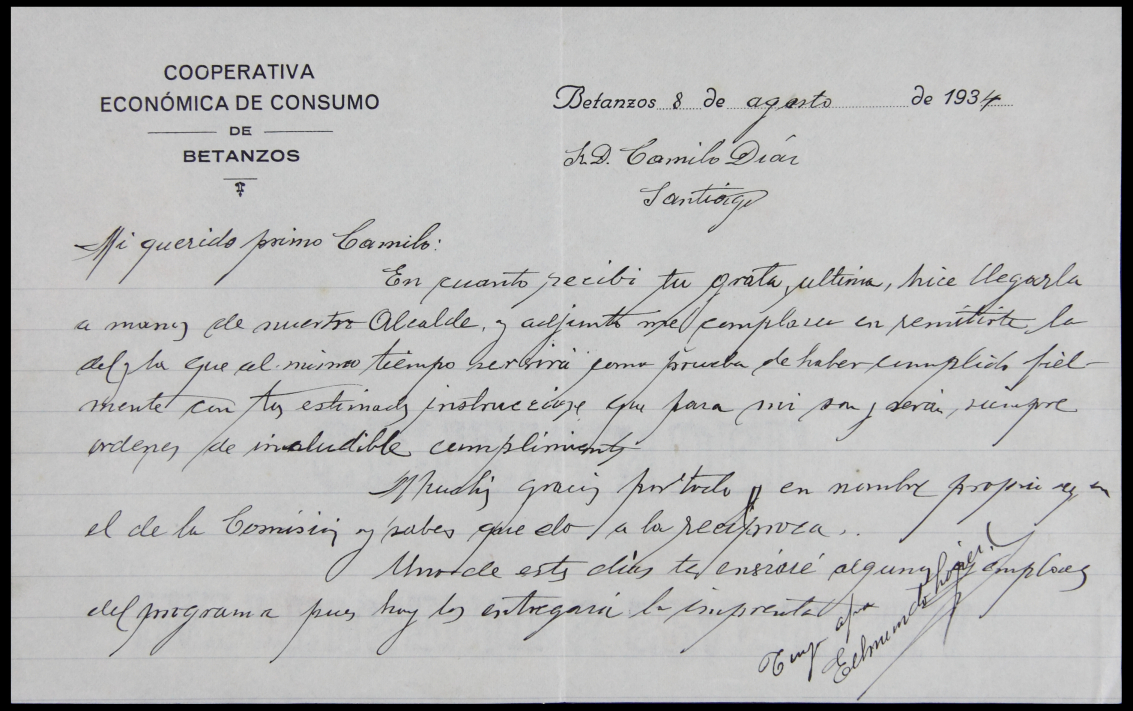 COOPERATIVA
ECONÓMICA DE CONSUMO
DE
BETANZOS
Betanzos 8 de agosto de 1934
Sr D. Camilo Díaz
Santiago
Mi querido primo Camilo:
En cuanto recibi tu grata, ultima, hice llegarla
a manos de nuestro Alcalde, y adjunto me complazco en remitirte, la
del, la que al mismo tiempo servirá como prueba de haber cumplido fiel-
mente con tus estimadas instrucciones que para mi son y serán, siempre
ordenes de ineludible cumplimiento
Muchas gracias por todo y en nombre propio y en
el de la Comisión y sabes quedo a la recíproca.
Uno de estos dias te enviaré algunos ejemplares
del programa pues hoy los entregará la imprenta
Tuyo afmo
Edmundo